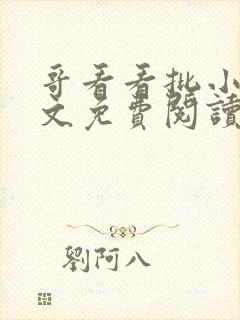 哥看看批小
文免費閱讀
劉阿八